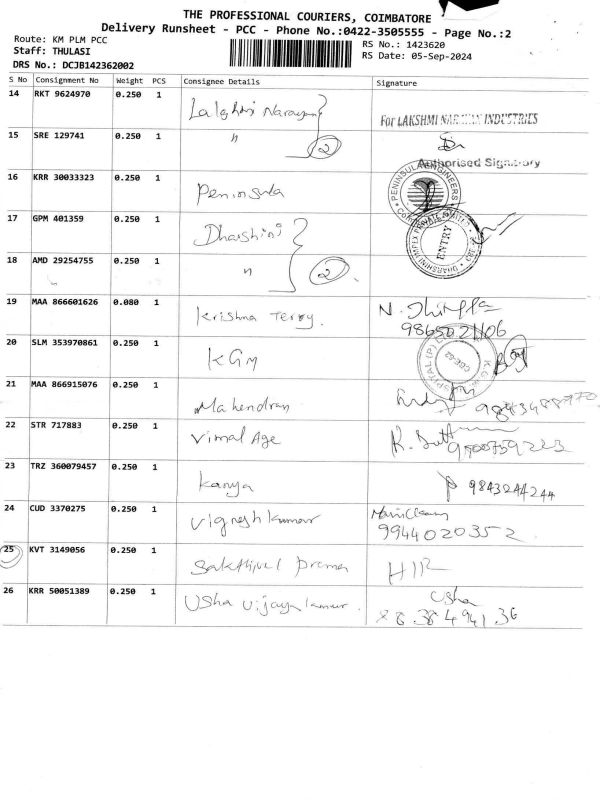 THE PROFESSIONAL COURIERS, COIMBATORE
Delivery Runsheet - PCC - Phone No.:0422-3505555 - Page No.:2
Route: KM PLM PCC
RS No.: 1423620
Staff: THULASI
RS Date: 05-Sep-2024
DRS No.: DCJB142362002
S No Consignment No Weight PCS Consignee Details Signature
14 RKT 9624970 0.250 1 Lalghmi Narayan For LAKSHMI NARAYAN INDUSTRIES
15 SRE 129741 0.250 1 " 2
Authorised Signatory
16 KRR 30033323 0.250 1 Peninsula PENINSULA ENGINEERS
17 GPM 401359 0.250 1 Dharshini DHARSHINI IMPEX PRIVATE LIMITED ENTRY
18 AMD 29254755 0.250 1 " 2
19 MAA 866601626 0.080 1 Krishna Terry. N.
9865021106
20 SLM 353970861 0.250 1 KGM
21 MAA 866915076 0.250 1 Mahendran
22 STR 717883 0.250 1 Vimal Age K.
9500759223
23 TRZ 360079457 0.250 1 Kanya 9843244244
24 CUD 3370275 0.250 1 Vignesh Kumar
9944020352
25 KVT 3149056 0.250 1 Sakthivel Prema
26 KRR 50051389 0.250 1 Usha Vijaya kumar. Usha